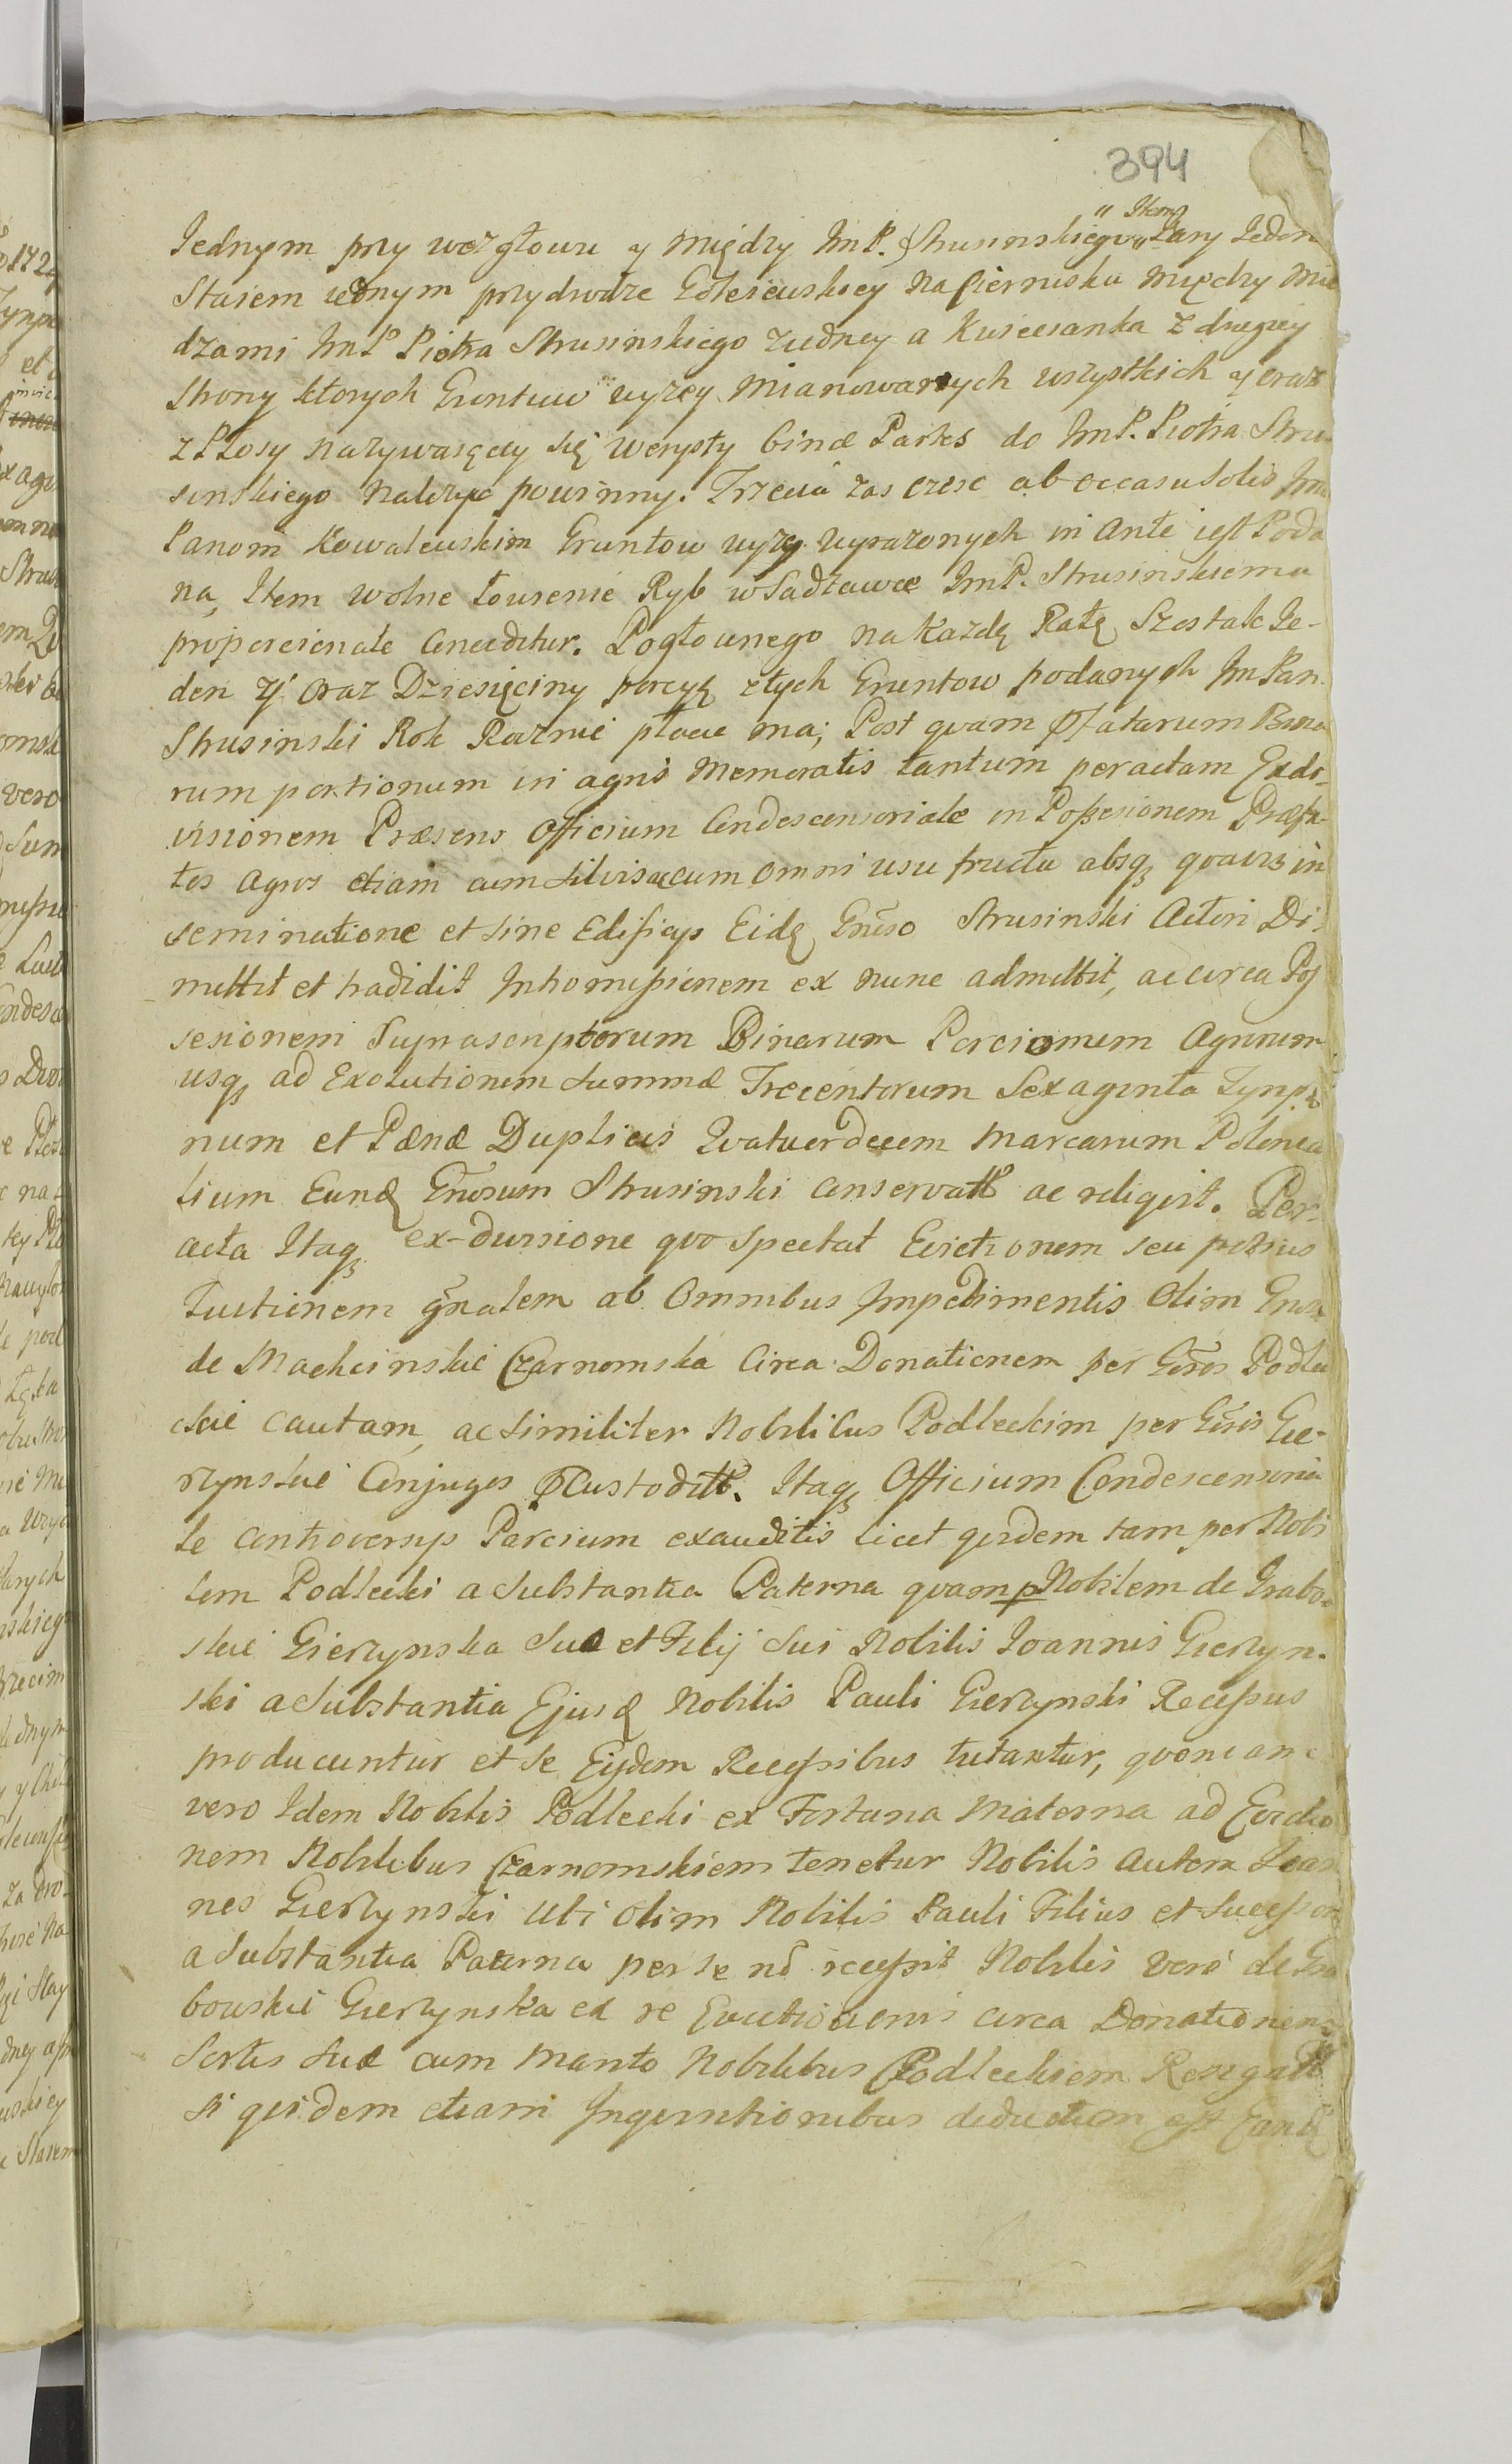 394
" Item
Jednym przy wezgłowiu y między ImP. Strusinskiego " Łany Ieden
Staiem iednym przydrodze Goleiewskiey na Cierniska między mie
dzami ImP Piotra Strusinskiego ziedney a Kusceianka z drugiey
Strony ktorych Gruntuw wyzey Mianowanych wszystkich y oraz
z Płosy nazywaiącey się werysty binæ Partes do ImP. Piotra Stru-
sinskiego nalezyc powinny. Trzecia zas czesc ab occasu Solis Im
Panom Kowalewskim Gruntow wyzy wyrazonych in Ante iest Poda
na, Item wolne łowienie Ryb w Sadzawce ImP. Strusinskiemu
proporcionate Conceditur. Pogłownego na Kazdą Ratę Szostak Ie-
den y oraz Dziesięciny porcyą ztych Gruntow podanych Im Pan
Strusinski Rok Rocznie płacic ma; Post qvam Pfatarum Bina
rum portionum in agris Memoratis tantum peractam Exdi-
visionem Præsens Officium Condescensoriale in Possesionem Præfa-
tos Agros etiam cum Silvis ac cum omni usu fructu absq qvavis in
seminatione et sine Edificijs Eidę Gnõso Strusinski Actori Di-
mittit et tradidit Intromissionem ex nunc admittit, ac circa Pos
sesionem Suprascriptorum Binarum Porcionum Agrorum
usq ad Exolutionem Summæ Trecentorum Sexaginta Tynp
num et Pænæ Duplicis Qvatuordecem Marcarum Polonica
lium Eundę Gnõsum Strusinski conservatt ac religit. Per-
acta Itaq ex-divisione qvo spectat Evictionem seu potius
Tuitionem gñalem ab Omnibus Impedimentis Olim Gnosæ
de Machcinskie Czarnomska Circa Donationem per Gnõs Podle
ckie cautam, ac similiter Nobilibus Podleckim per Gnõs Gie-
rzynskie Conjuges PCustoditt. Itaq Officium Condescensoria
le controversijs Parcium exauditis licet qvidem tam per Nobi
lem Podlecki a Substantia Paterna qvam p Nobilem de Grabo-
skie Gierzynska Suæ et Filij Sui Nobilis Joannis Gierzyn-
ski a Substantia Ejusdę Nobilis Pauli Gierzynski Recessus
producuntur et se Eijsdem Recessibus tutantur, qvoniam
vero Idem Nobilis Podlecki ex Fortuna Materna ad Evictio
nem Nobilibus Czarnomskiem tenetur Nobilis autem Ioan
nes Gierzynski uti olim Nobilis Pauli Filius et Successor
a Substantia Paterna per se nõ recessit Nobilis vero de Gra
bowskie Gierzynska ex re Evictionis circa Donationem
Sortis Suæ cum Marito Nobilibus Podleckiem Resignatt
si qvidem etiam Inqvisitionibus deductum est Eandę